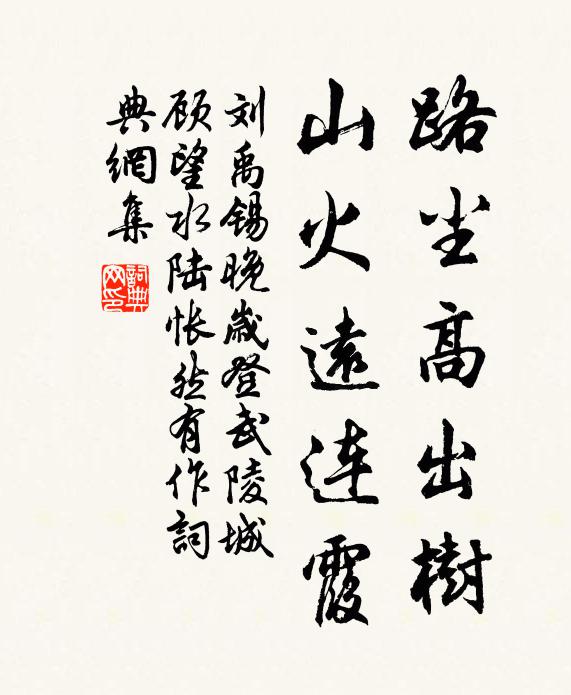 路尘高出樹
山火遠连霞
刘禹锡晚歲登武陵城
顾望水陆怅然有作詞
典網集
詞典网印